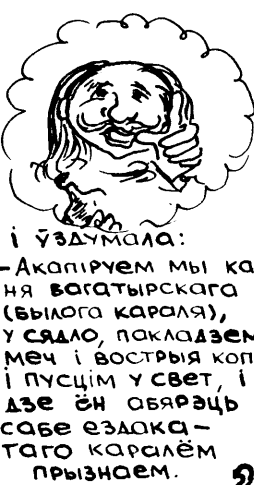 і ўздумала:
-Акапіруем мы ка
ня вагатырскага
(былога караля),
у сядло, пакладзем
меч і вострыя коп
і пусцім у свет, і
дзе ён абярэць
сабе ездака-
таго каралём
прызнаем.